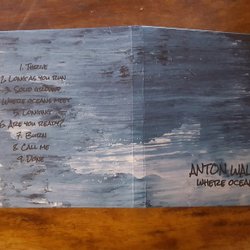 1. Thrive
2. Long as you run
3. Solid ground
Where oceans meet
5. Longing
6. Are you ready?
7. Burn
8. Call me
9. Done
ANTON WAL
WHERE OCEAN